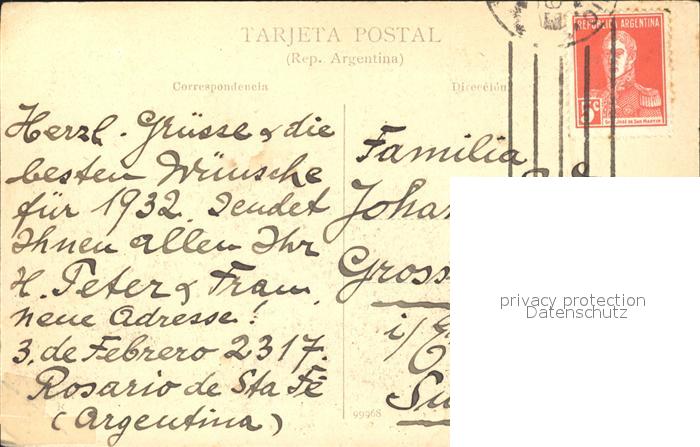 TARJETA POSTAL
(Rep. Argentina)
Correspondencia
Dirección
REPUBLICA ARGENTINA
5c
GRAL. JOSÉ DE SAN MARTIN
Herzl. Grüsse & die
besten Wünsche
für 1932. Sendet
Ihnen allen Ihr
H. Peter & Frau.
neue Adresse!
3. de Febrero 2317.
Rosario de Sta Fé
(Argentina)
Familia
Gross
i/E
99968
privacy protection
Datenschutz